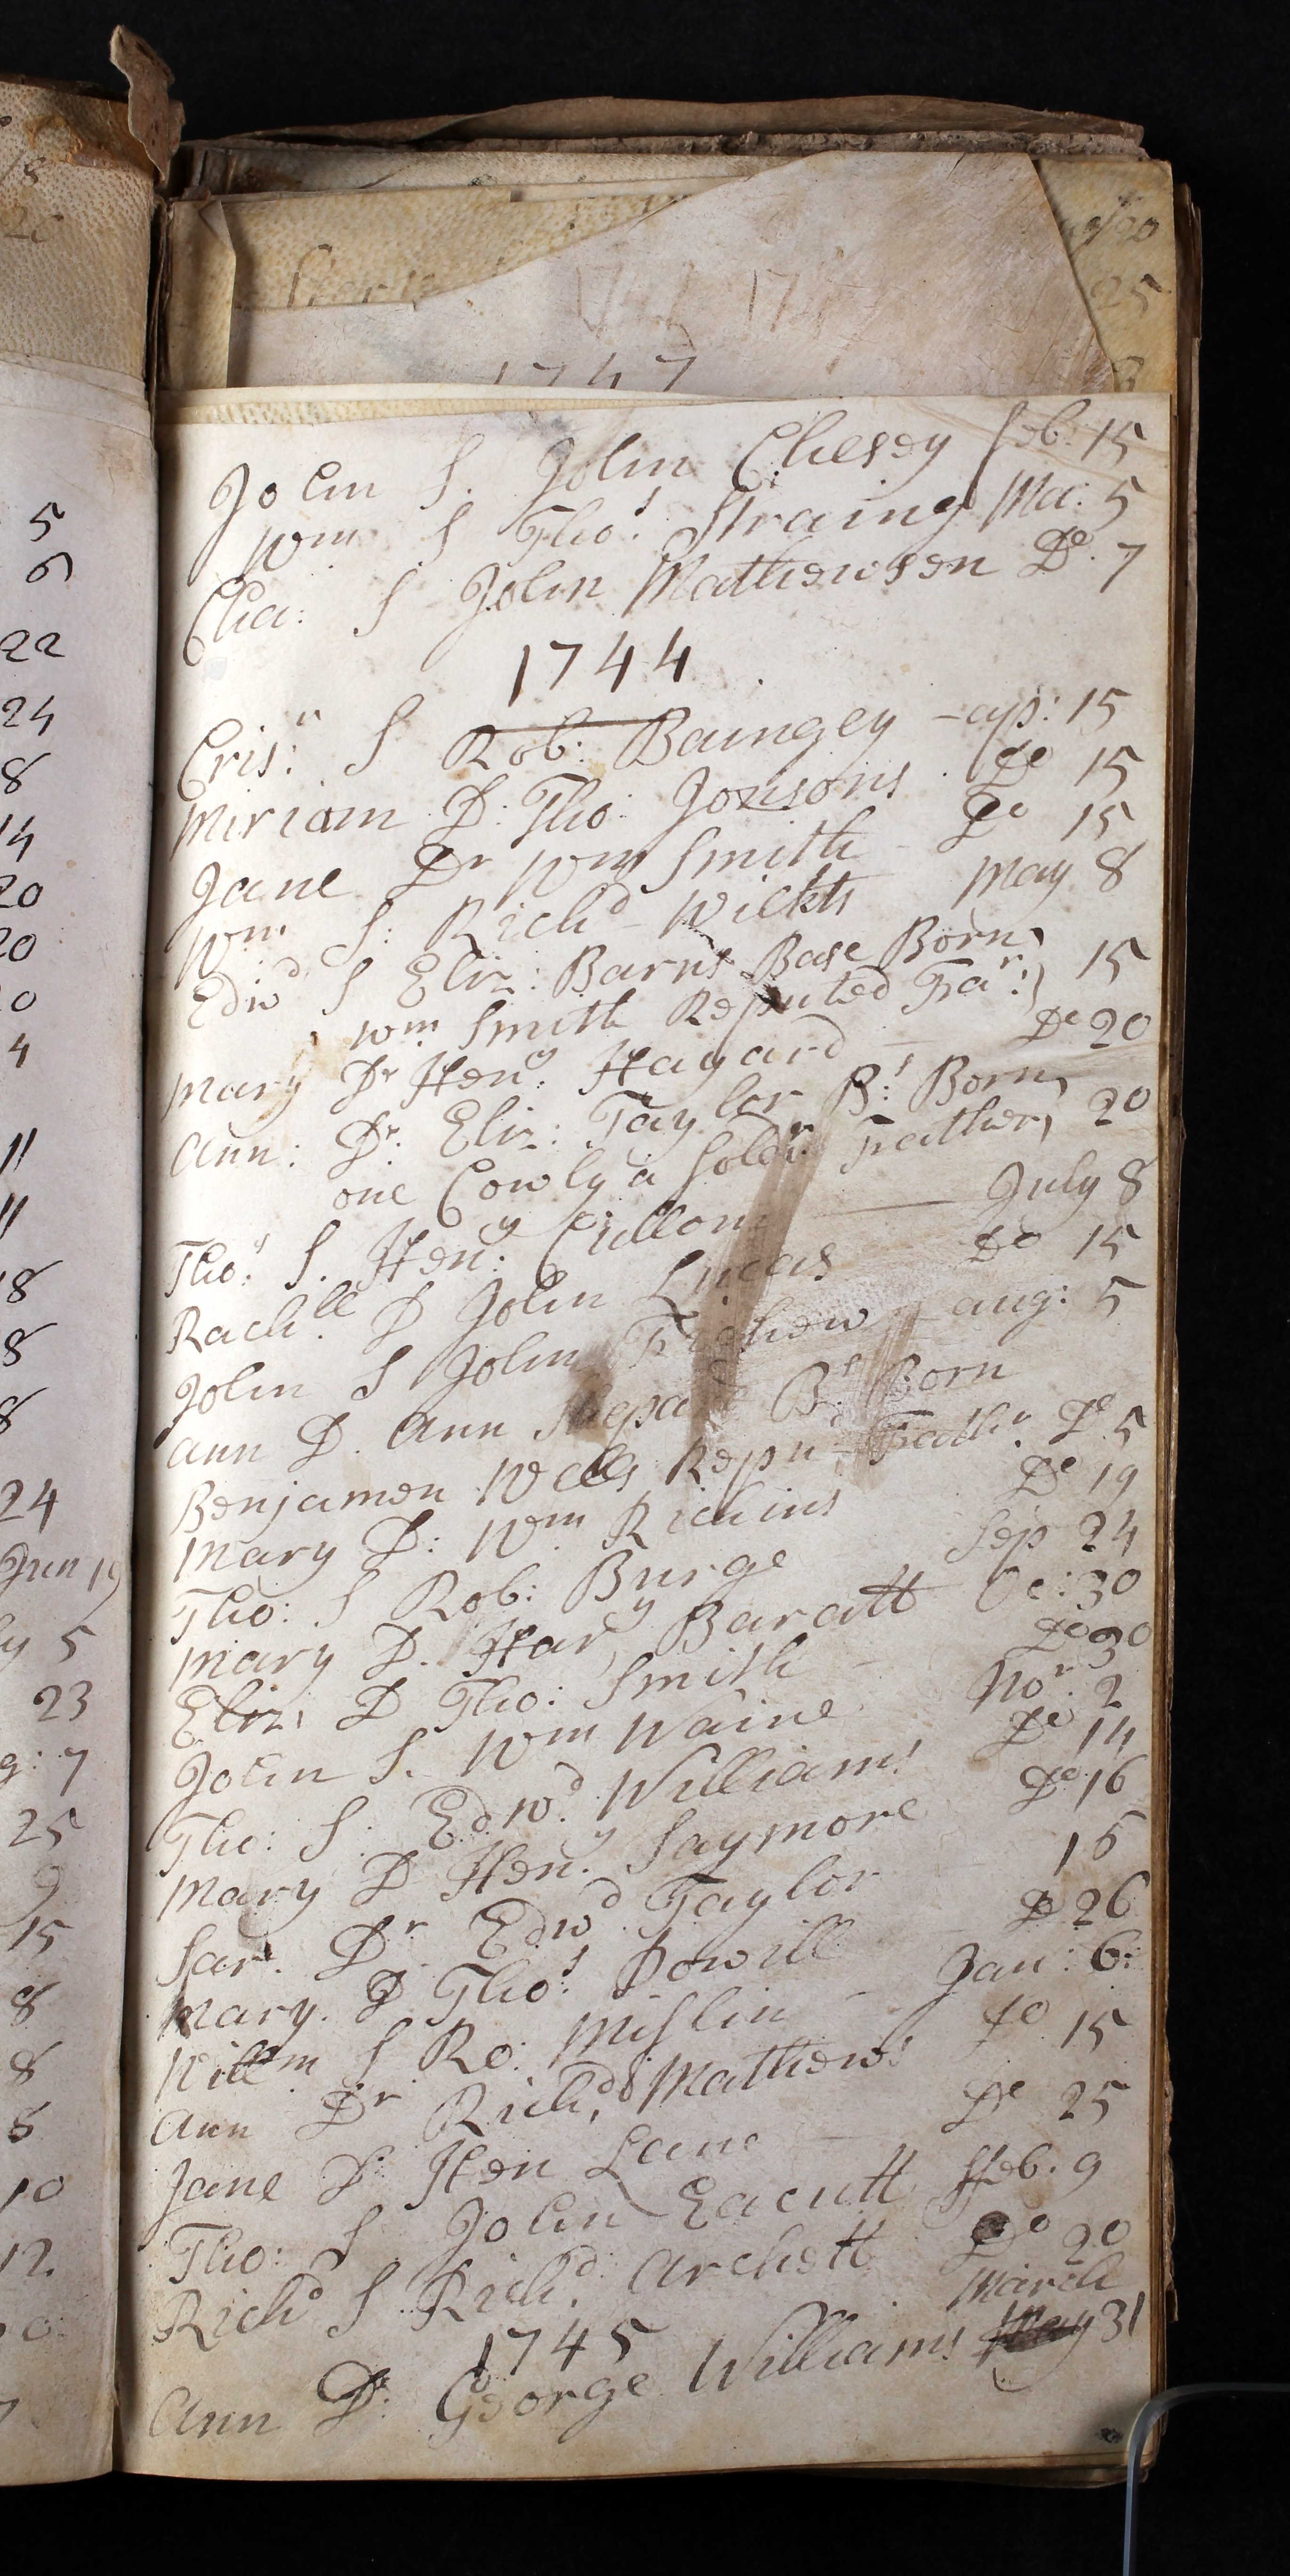 5
6
22
24
8
14
20
20
4
11
11
18
8
8
24
Jun 19
ly 5
23
g: 7
25
9
15
8
8
8
10
12
25
1747
John S. John Chesey Feb: 15
Wm S Tho.s Strainy Ma: 5
Cha: S John Mathewsen Do. 7
1744
Cris:n S Rob: Baungey - ap: 15
Miriam D: Tho: Jonsons Do 15
Jane Dr Wm Smith - Do 15
Wm S: Richd Wickts May 8
Edwd S Eliz: Barns Base Born
Wm Smith Reputed Far: 15
Mary Dr Hen:y Hagard - Do 20
Ann: Dr. Eliz: Taylor B:s Born
one Cowly a Soldr Father 20
Tho:s S. Hen:y Cullom July 8
Rach:ll D John Lucas Do 15
John S John aug: 5
Ann D. Ann Shepard B:s Born
Benjamen Wells Repud Fathr. Do. 5
Mary D: Wm Richins Do 19
Tho: S Rob: Burge Sep 24
Mary D. Hary Baratt Oc: 30
Eliz: D Tho: Smith - Do 30
John S. Wm Waine Nor. 2
Tho: S: Edwd. Williams Do 14
Mary D Hen:y Saymore Do 16
Sar: Dr Edwd Taylor 16
Mary. D Tho:s Dowill Do 26
Willm S Ro: Mislin - Jan: 6:
Ann Dr Richd. Mathews Do 15
Jane D: Hen Lane - Do 25
Tho: S John Eacutt Feb. 9
Richd S Richd. Archett Do 20
1745 March
Ann Dr: George Williams 31